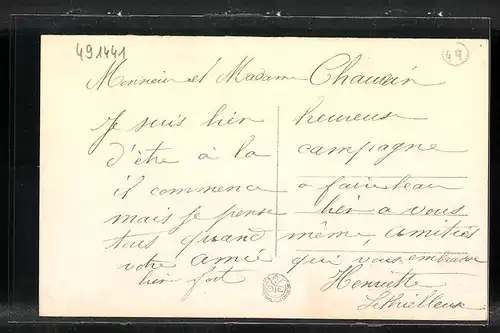 491441
47
Monsieur et Madame Chauvin
Je suis bien heureuse
d'être à la campagne
il commence a faire beau
mais je pense bien a vous
tous quand même, amitiés
votre amie qui vous embrasse
bien fort Henriette